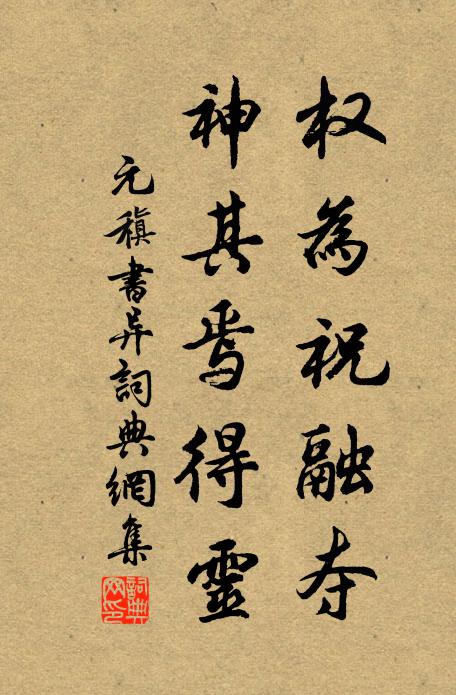 权為祝融夺
神其焉得靈
元稹書异詞典網集
詞典网印